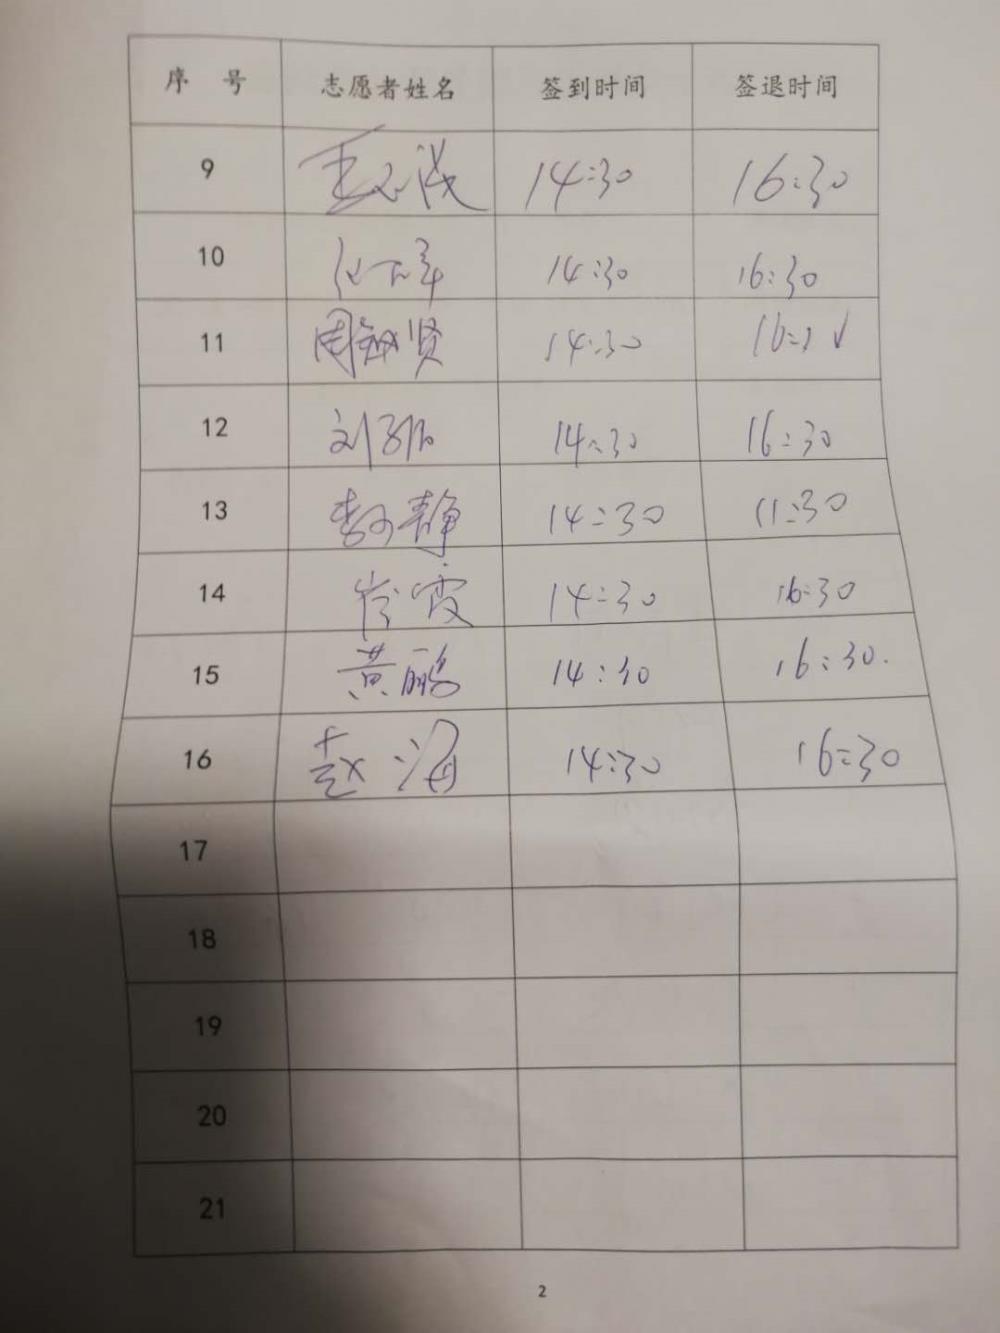 序 号 志愿者姓名 签到时间 签退时间
9 14:30 16:30
10 14:30 16:30
11 周敏贤 14:30
12 14:30 16:30
13 静 14:30 11:30
14 崔霞 14:30 16:30
15 黄鹏 14:30 16:30.
16 赵海 14:30 16:30
17
18
19
20
21
2